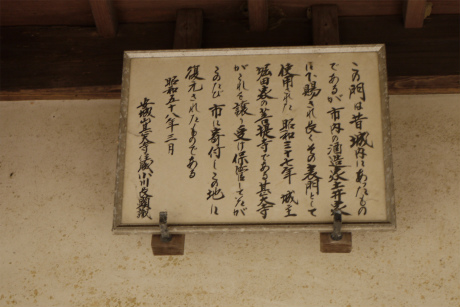 この門は昔城内にあったもの
であるが市内の酒造家土井家
に下賜され長くその表門として
使用された 昭和三十七年 城主
堀田家の菩提寺である甚大寺
がこれを譲り受け保管していたが
このたび市に寄付しこの地に
復元されたものである
昭和五十八年三月